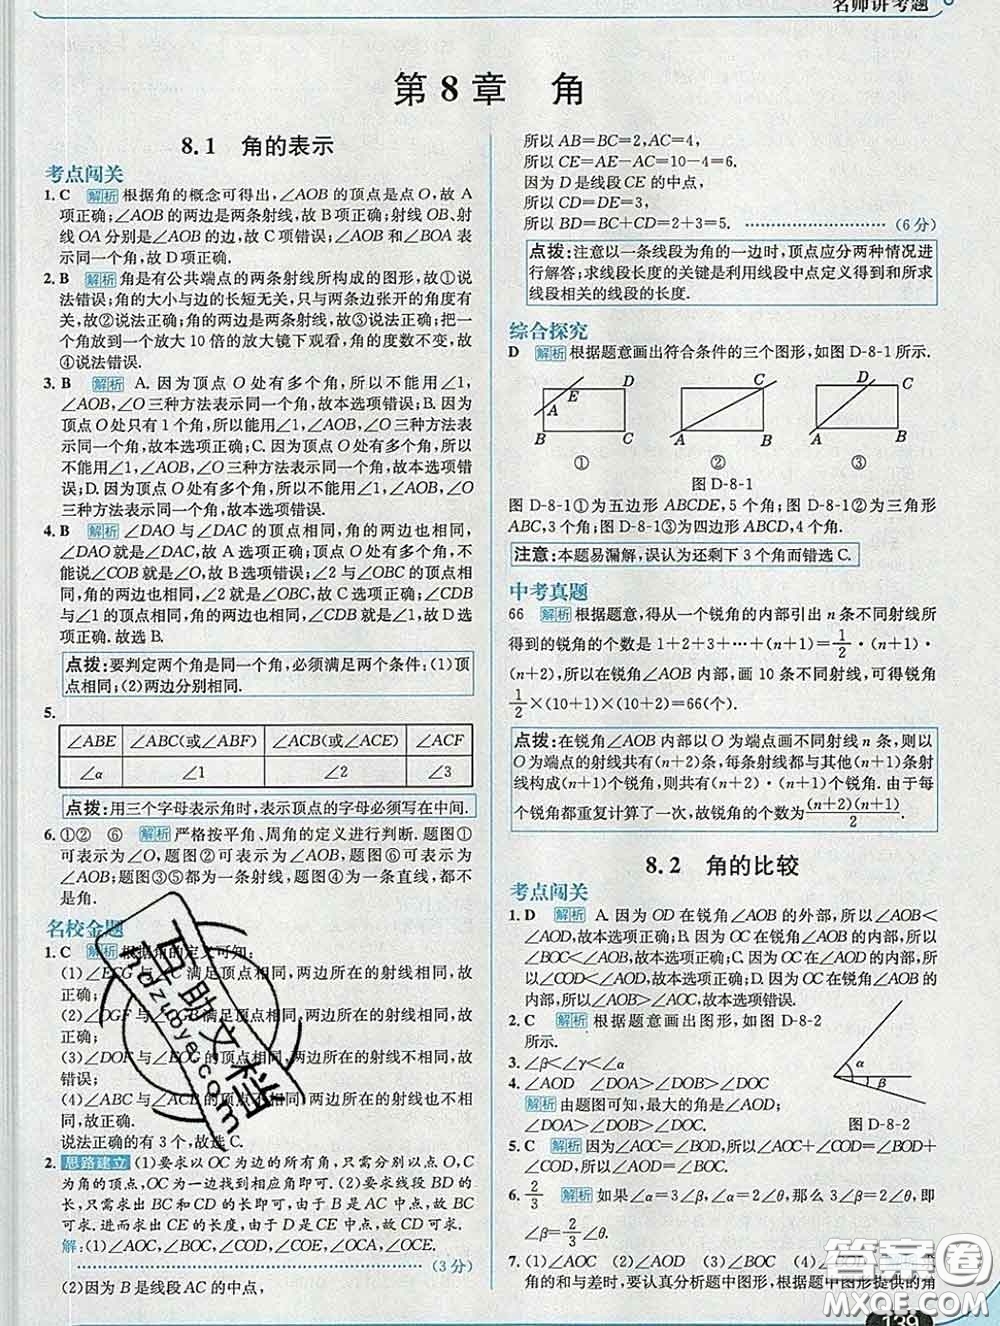 名师讲考题
第8章 角
8.1 角的表示
考点闯关
1. C 解析 根据角的概念可得出,∠AOB的顶点是点O,故A
项正确;∠AOB的两边是两条射线,故B项正确;射线OB、射
线OA分别是∠AOB的边,故C项错误;∠AOB和∠BOA表
示同一个角,故D项正确.
2. B 解析 角是有公共端点的两条射线所构成的图形,故①说
法错误;角的大小与边的长短无关,只与两条边张开的角度有
关,故②说法正确;角的两边是两条射线,故③说法正确;把一
个角放到一个放大10倍的放大镜下观看,角的度数不变,故
④说法错误.
3. B 解析 A.因为顶点O处有多个角,所以不能用∠1,
∠AOB,∠O三种方法表示同一个角,故本选项错误;B.因为
顶点O处只有1个角,所以能用∠1,∠AOB,∠O三种方法表
示同一个角,故本选项正确;C.因为顶点O处有多个角,所以
不能用∠1,∠AOB,∠O三种方法表示同一个角,故本选项错
误;D.因为顶点O处有多个角,所以不能用∠1,∠AOB,∠O
三种方法表示同一个角,故本选项错误.
4. B 解析 ∠DAO与∠DAC的顶点相同,角的两边也相同,
∠DAO就是∠DAC,故A选项正确;∠COB就是∠O,不可能
说∠COB就是∠AOD,故B选项错误;∠2与∠OBC的顶点
相同,角的两边也相同,∠2就是∠OBC,故C选项正确;∠CDB
与∠1的顶点相同,角的两边也相同,∠CDB就是∠1,故D选
项正确.故选B.
点拨:要判定两个角是同一个角,必须满足两个条件:(1)顶
点相同;(2)两边分别相同.
5.
∠ABE ∠ABC(或∠ABF) ∠ACB(或∠ACE) ∠ACF
∠α ∠1 ∠2 ∠3
点拨:用三个字母表示角时,表示顶点的字母必须写在中间.
6. ①② ⑥ 解析 严格按平角、周角的定义进行判断.题图①
可表示为∠O,题图②可表示为∠AOB,题图⑥可表示为
∠AOB.题图③⑤都仅为一条射线,题图④仅为一条直线,都不
是角.
名校金题
1. C 解析 根据角的定义可知:
(1)∠ECG与∠C满足顶点相同,两边所在的射线相同,故
正确;
(2)∠OGF与∠OGB满足顶点相同,两边所在的射线相同,故
正确;
(3)∠DOF与∠EOG的顶点相同,两边所在的射线不相同,故
错误;
(4)∠ABC与∠ACB的顶点不相同,两边所在的射线也不相
同,故正确.
说法正确的有3个,故选C.
2. 思路建立 (1)要求以OC为边的所有角,只需分别以点O,C
为角的顶点,OC为一边找到相应角即可.(2)要求线段BD的
长,只需求出BC和CD的长即可,由于B是AC中点,故BC
可求.进而求出CE的长度,由于D是CE中点,故CD可求.
解:(1)∠AOC,∠BOC,∠COD,∠COE,∠OCA,∠OCE.
(3分)
(2)因为B是线段AC的中点,
所以AB=BC=2,AC=4,
所以CE=AE-AC=10-4=6.
因为D是线段CE的中点,
所以CD=DE=3,
所以BD=BC+CD=2+3=5. (6分)
点拨:注意以一条线段为角的一边时,顶点应分两种情况进
行解答;求线段长度的关键是利用线段中点定义得到和所求
线段相关的线段的长度.
综合探究
D 解析 根据题意画出符合条件的三个图形,如图D-8-1所示.
A E D B C
①
C A B
②
D C A B
③
图D-8-1
图D-8-1①为五边形ABCDE,5个角;图D-8-1②为三角形
ABC,3个角;图D-8-1③为四边形ABCD,4个角.
注意:本题易漏解,误认为还剩下3个角而错选C.
中考真题
66 解析 根据题意,得从一个锐角的内部引出n条不同射线所
得到的锐角的个数是1+2+3+…+(n+1)=1/2·(n+1)·
(n+2),所以在锐角∠AOB内部,画10条不同射线,可得锐角
1/2×(10+1)×(10+2)=66(个).
点拨:在锐角∠AOB内部以O为端点画不同射线n条,则以
O为端点的射线共有(n+2)条,每条射线都与其他(n+1)条射
线构成(n+1)个锐角,则共有(n+2)(n+1)个锐角.由于每
个锐角都重复计算了一次,故锐角的个数为(n+2)(n+1)/2.
8.2 角的比较
考点闯关
1. D 解析 A.因为OD在锐角∠AOB的外部,所以∠AOB<
∠AOD,故本选项正确;B.因为OC在锐角∠AOB的内部,所以
∠BOC<∠AOB,故本选项正确;C.因为OC在∠AOD的内部,所
以∠COD<∠AOD,故本选项正确;D.因为OC在锐角∠AOB的
内部,所以∠AOB>∠AOC,故本选项错误.
2. C 解析 根据题意画出图形,如图D-8-2
所示.
α
β
图D-8-2
3. ∠β<∠γ<∠α
4. ∠AOD ∠DOA>∠DOB>∠DOC
解析 由题图可知,最大的角是∠AOD;
∠DOA>∠DOB>∠DOC.
5. C 解析 因为∠AOC=∠BOD,所以∠AOC+∠COD=∠BOD+
∠COD,所以∠AOD=∠BOC.
6. 2/3 解析 如果∠α=3∠β,∠α=2∠θ,那么3∠β=2∠θ,即
∠β=2/3∠θ.
7. (1)∠AOC (2)∠AOD (3)∠BOC
角的和与差时,要认真分析题中图形,根据题中图形提供的角
139
直助文档
ndzuoye.com
答案圈
MXQE.COM